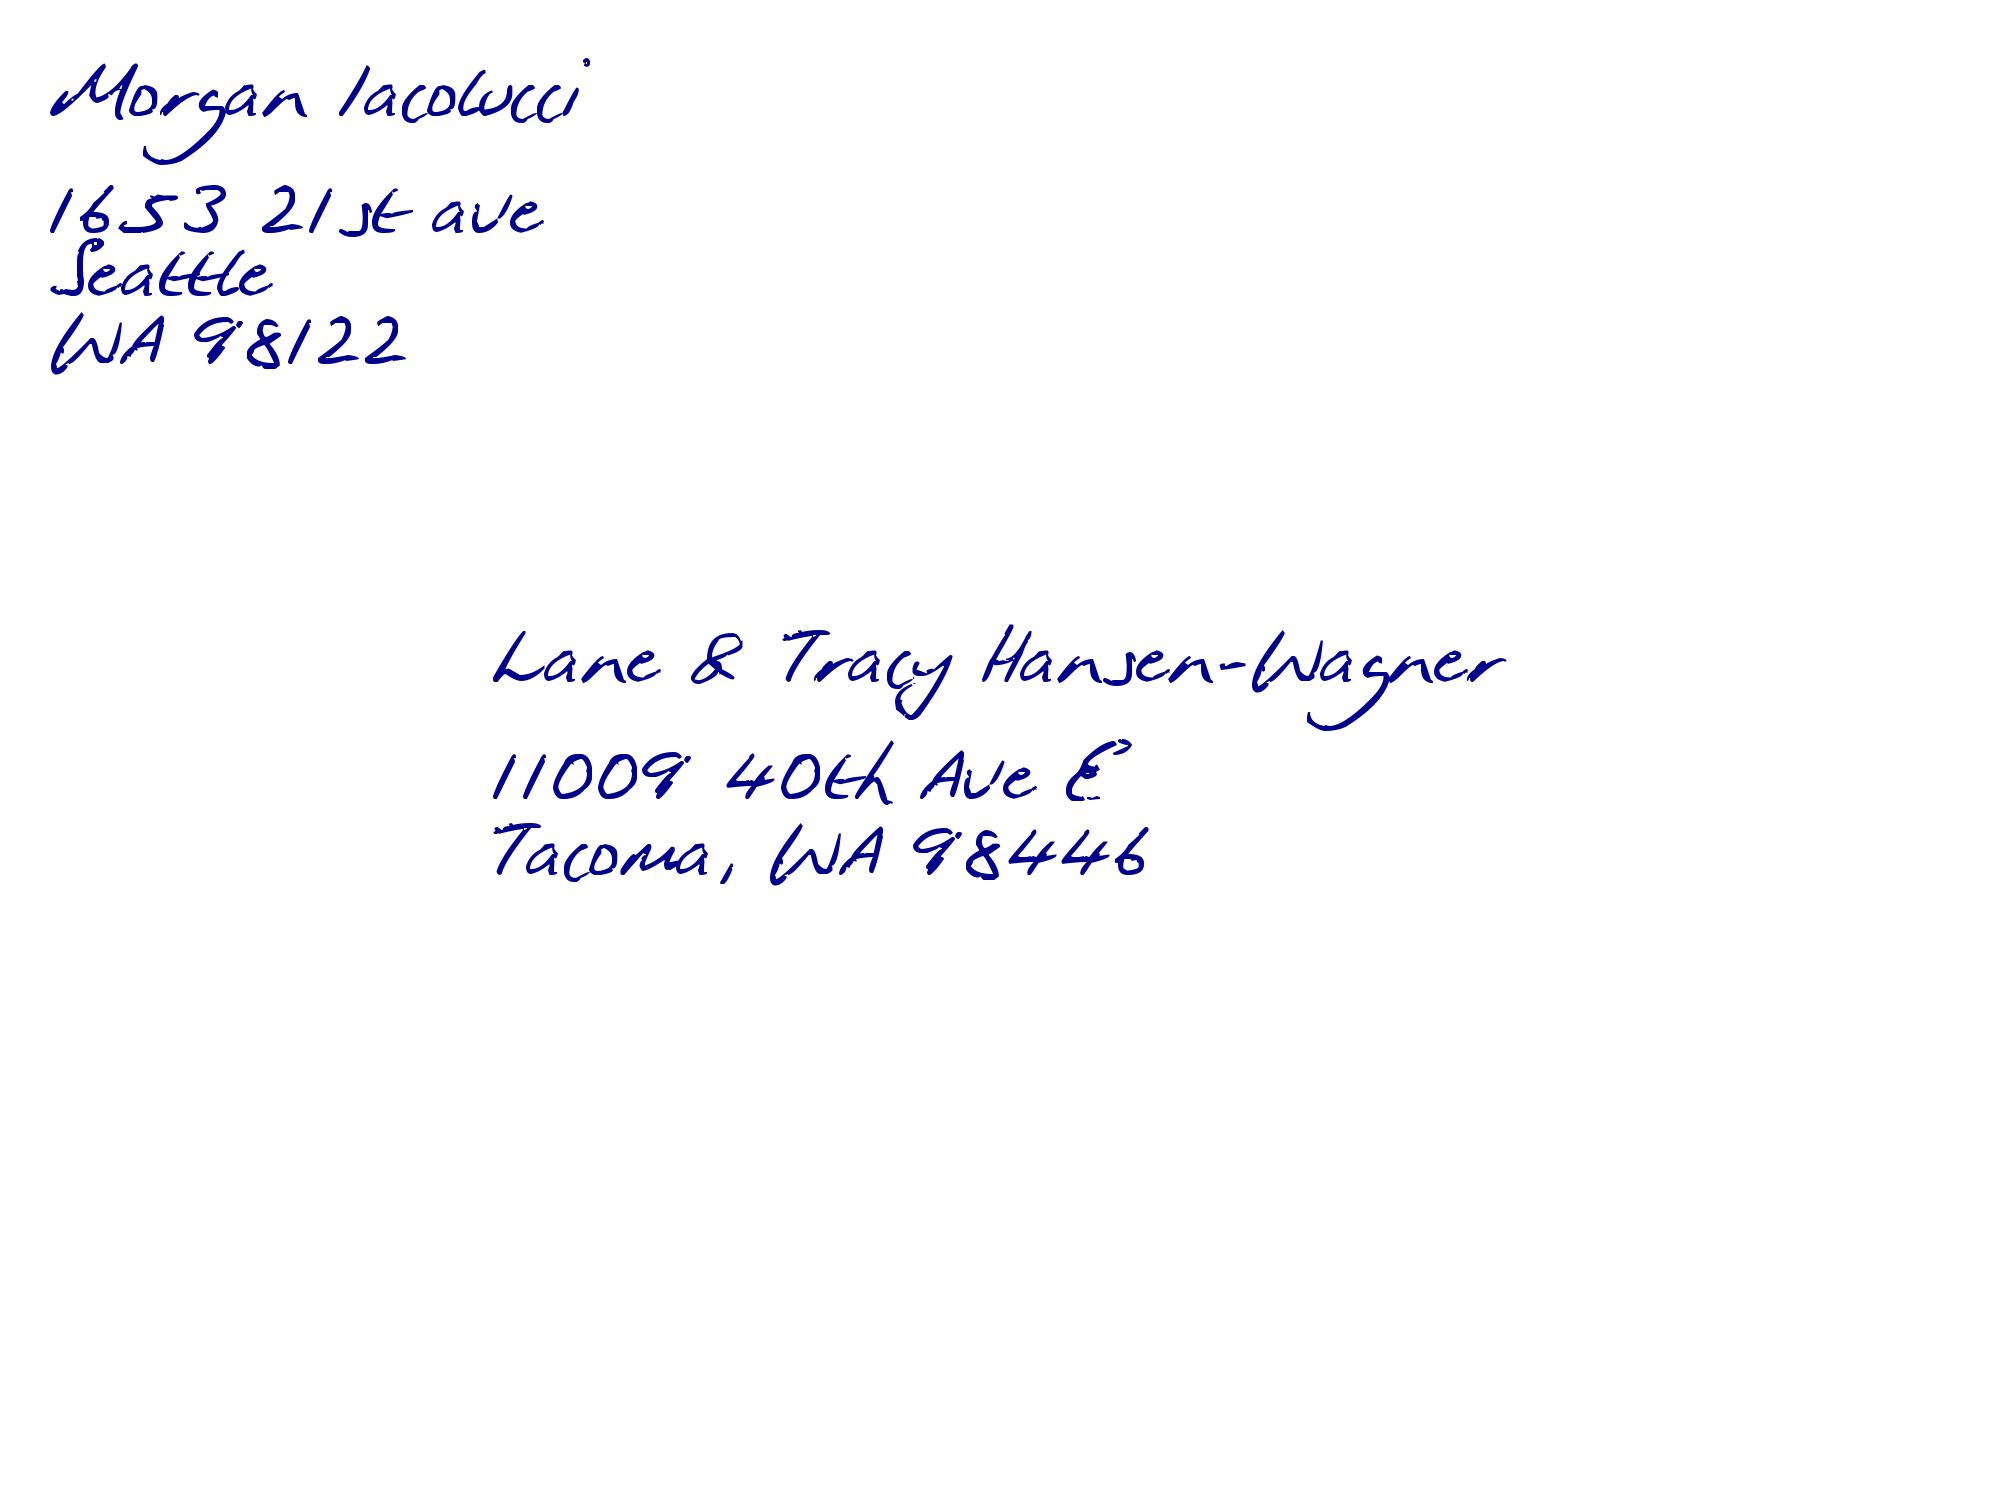 Morgan Iacolucci
1653 21st ave
Seattle
WA 98122
Lane & Tracy Hansen-Wagner
11009 40th Ave E
Tacoma, WA 98446